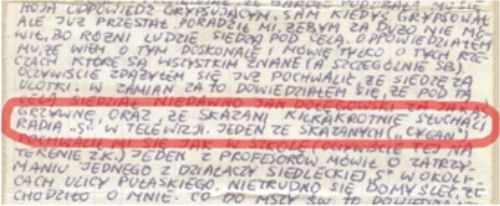 MOJA ODPOWIEDŹ GRYPSUJĄCYM. SAM KIEDYŚ GRYPSOWAŁ
ALE JUŻ PRZESTAŁ. PORADZIŁ MI, ŻEBYM ZA DUŻO NIE MÓ-
WIŁ, BO RÓŻNI LUDZIE SIEDZĄ POD CELĄ. ODPOWIEDZIAŁEM
MU, ŻE WIEM O TYM DOSKONALE I MÓWIĘ TYLKO O TYCH RZE-
CZACH KTÓRE SĄ WSZYSTKIM ZNANE (A SZCZEGÓLNIE SB)
OCZYWIŚCIE ZDĄŻYŁEM SIĘ JUŻ POCHWALIĆ, ŻE SIEDZĘ ZA
ULOTKI. W ZAMIAN ZA TO DOWIEDZIAŁEM SIĘ, ŻE POD TĄ
CELĄ SIEDZIAŁ NIEDAWNO JAN DOŁĘGOWSKI ZA JAKĄŚ
GRZYWNĘ, ORAZ, ŻE SKAZANI KILKAKROTNIE SŁUCHALI
RADIA „S" W TELEWIZJI. JEDEN ZE SKAZANYCH („CYGAN")
POCHWALIŁ MI SIĘ JAK W SZKOLE (OCZYWIŚCIE TEJ NA
TERENIE Z.K.) JEDEN Z PROFESORÓW MÓWIŁ O ZATRZY-
MANIU JEDNEGO Z DZIAŁACZY SIEDLECKIEJ „S" W OKOLI-
CACH ULICY PUŁASKIEGO. NIETRUDNO SIĘ DOMYŚLEĆ, ŻE
CHODZIŁO O MNIE. CO DO MSZY ŚW. TO